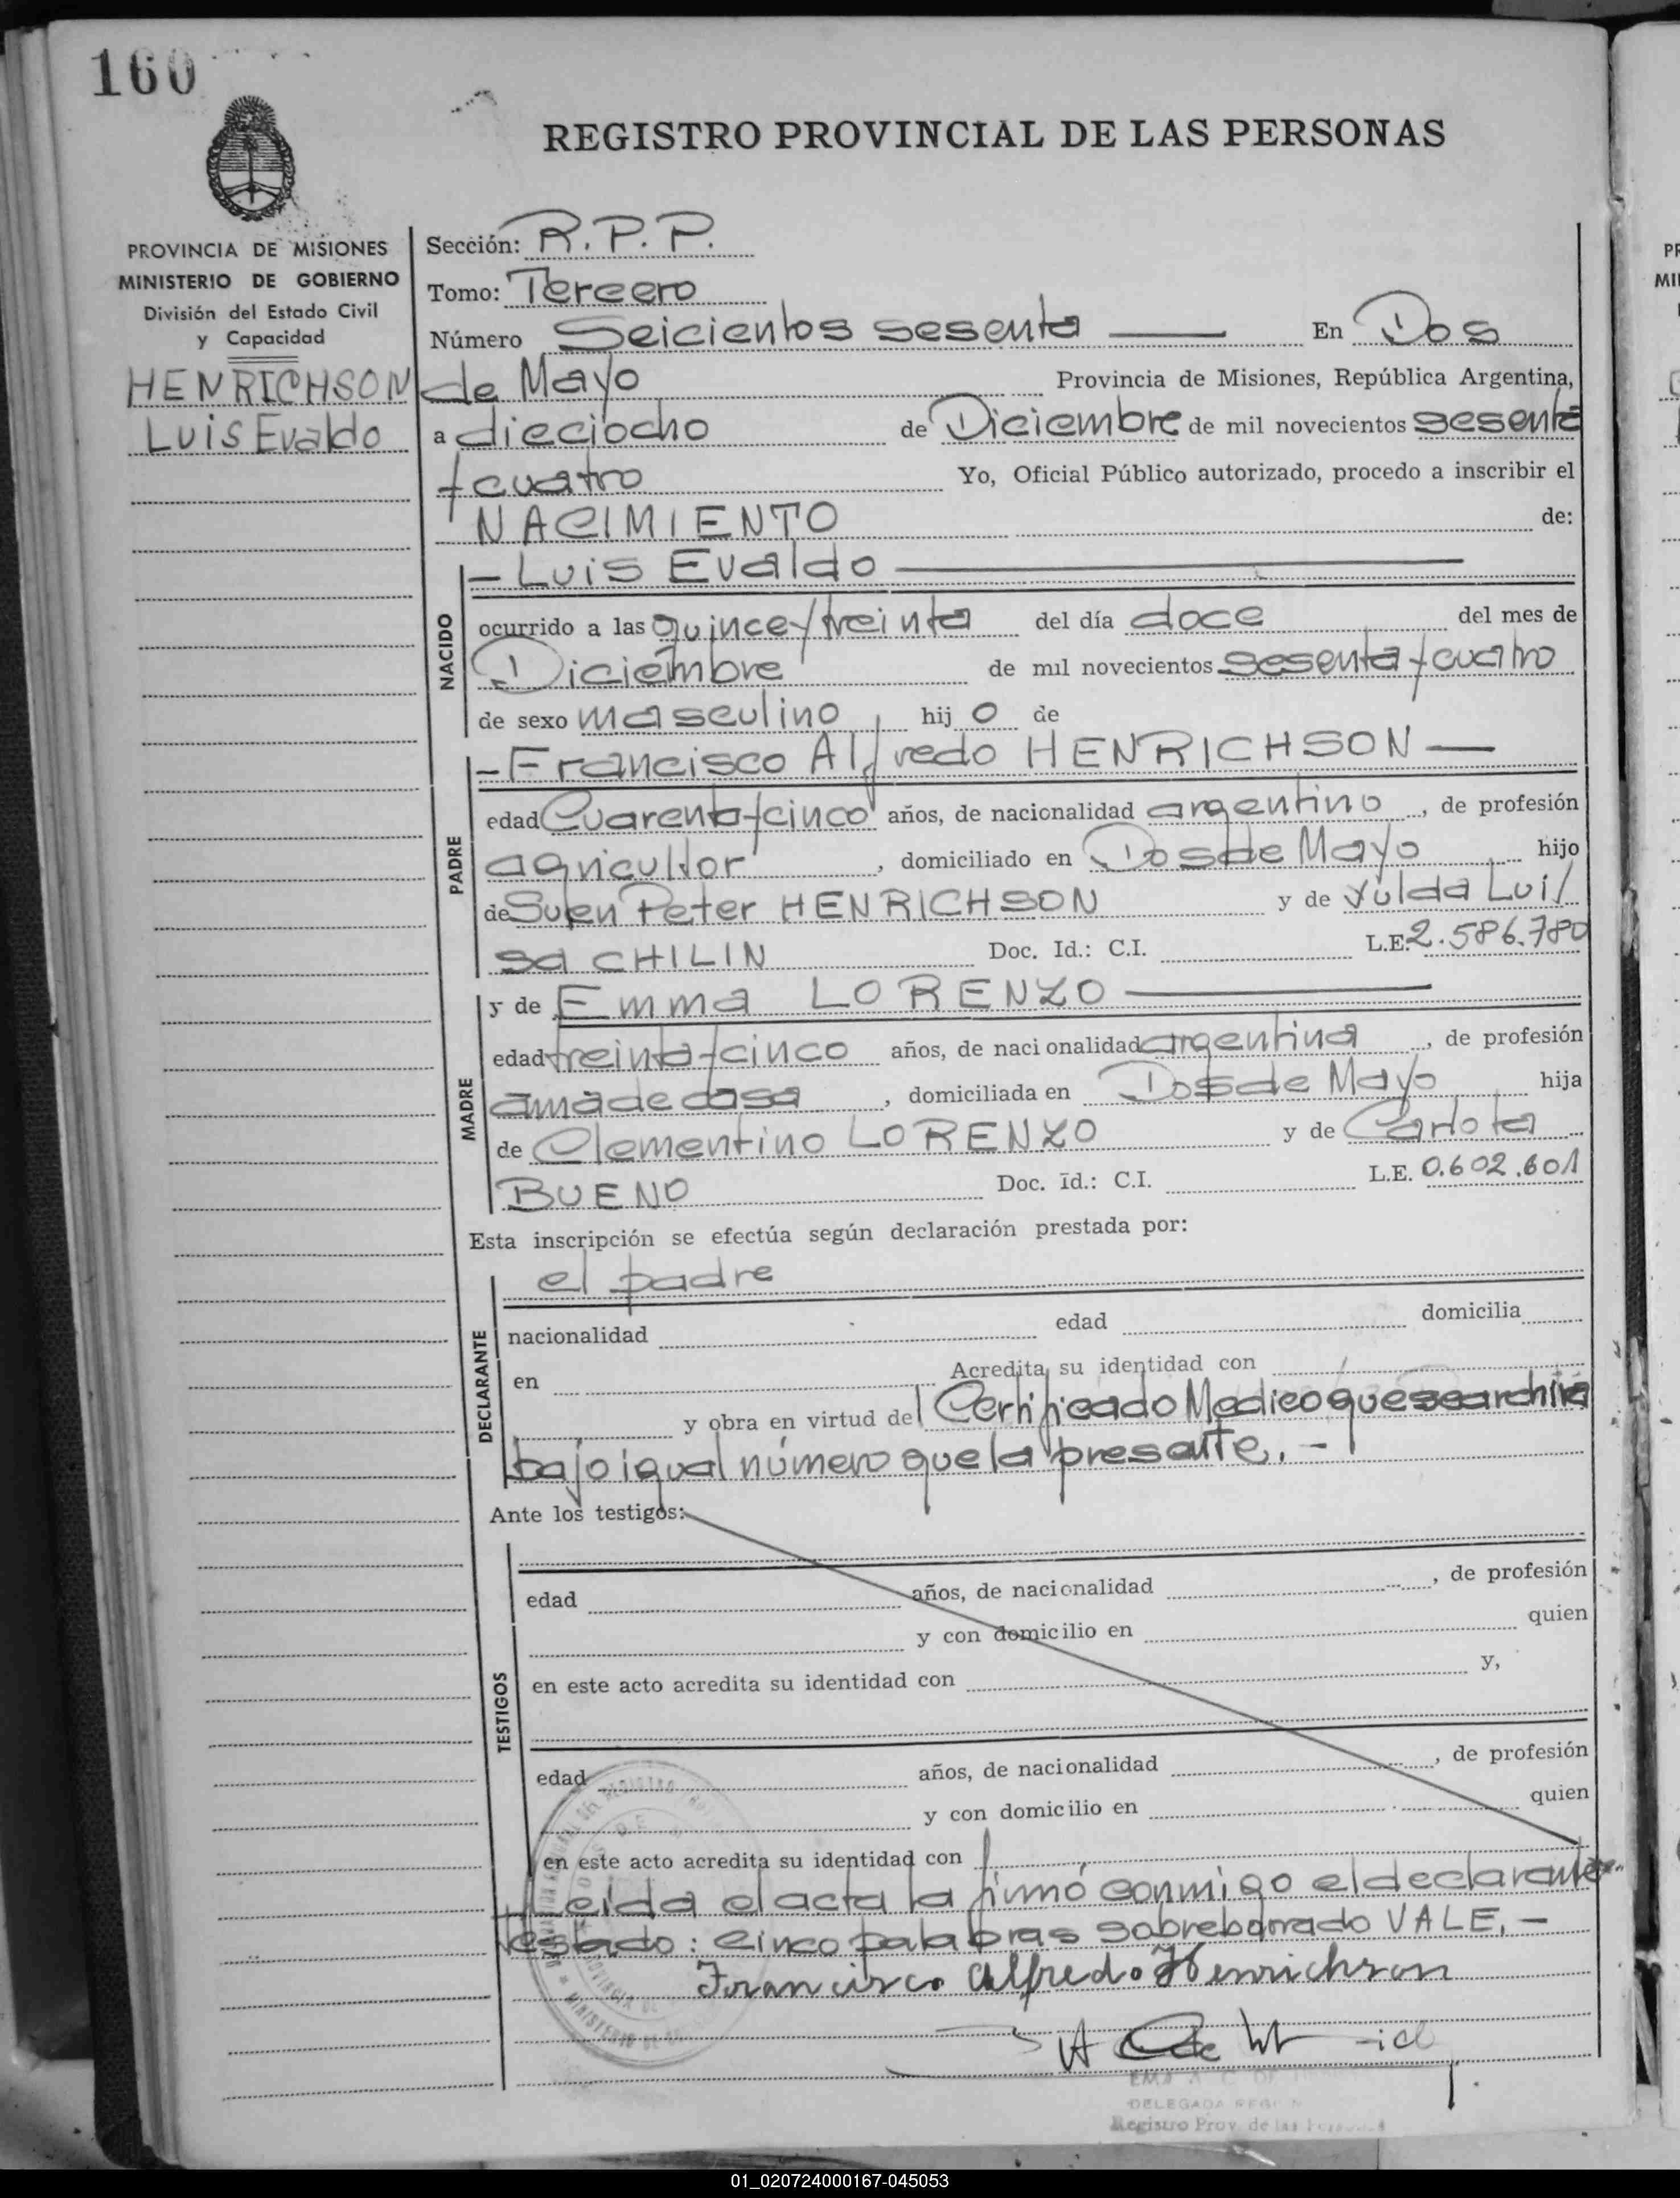 160
REGISTRO PROVINCIAL DE LAS PERSONAS
PROVINCIA DE MISIONES
MINISTERIO DE GOBIERNO
División del Estado Civil
y Capacidad
HENRICHSON
Luis Evaldo
Sección: R. P. P.
Tomo: Tercero
Número Seicientos sesenta — En Dos
de Mayo Provincia de Misiones, República Argentina,
a dieciocho de Diciembre de mil novecientos sesenta
y cuatro Yo, Oficial Público autorizado, procedo a inscribir el
NACIMIENTO de:
NACIDO
- Luis Evaldo —
ocurrido a las quince y treinta del día doce del mes de
Diciembre de mil novecientos sesenta y cuatro
de sexo masculino, hij o de
PADRE
- Francisco Alfredo HENRICHSON —
edad Cuarenta y cinco años, de nacionalidad argentino, de profesión
agricultor, domiciliado en Dos de Mayo hijo
de Suen Peter HENRICHSON y de Yulda Lui/
sa CHILIN Doc. Id.: C.I. L.E. 2.586.780
MADRE
y de Emma LORENZO —
edad treinta y cinco años, de nacionalidad argentina, de profesión
ama de casa, domiciliada en Dos de Mayo hija
de Clementino LORENZO y de Carlota
BUENO Doc. id.: C.I. L.E. 0.602.601
Esta inscripción se efectúa según declaración prestada por:
DECLARANTE
el padre
nacionalidad edad domicilia
en Acredita su identidad con
y obra en virtud del Certificado Medico que se archiva
bajo igual número que la presente. -
Ante los testigos:
TESTIGOS
edad años, de nacionalidad , de profesión
y con domicilio en quien
en este acto acredita su identidad con y,
edad años, de nacionalidad , de profesión
y con domicilio en quien
en este acto acredita su identidad con
Leida el acta la firmó conmigo el declarante
testado: cinco palabras sobreborrado VALE. -
Francisco Alfredo Henrichson
DELEGADA
Registro Prov. de las
01_020724000167-045053